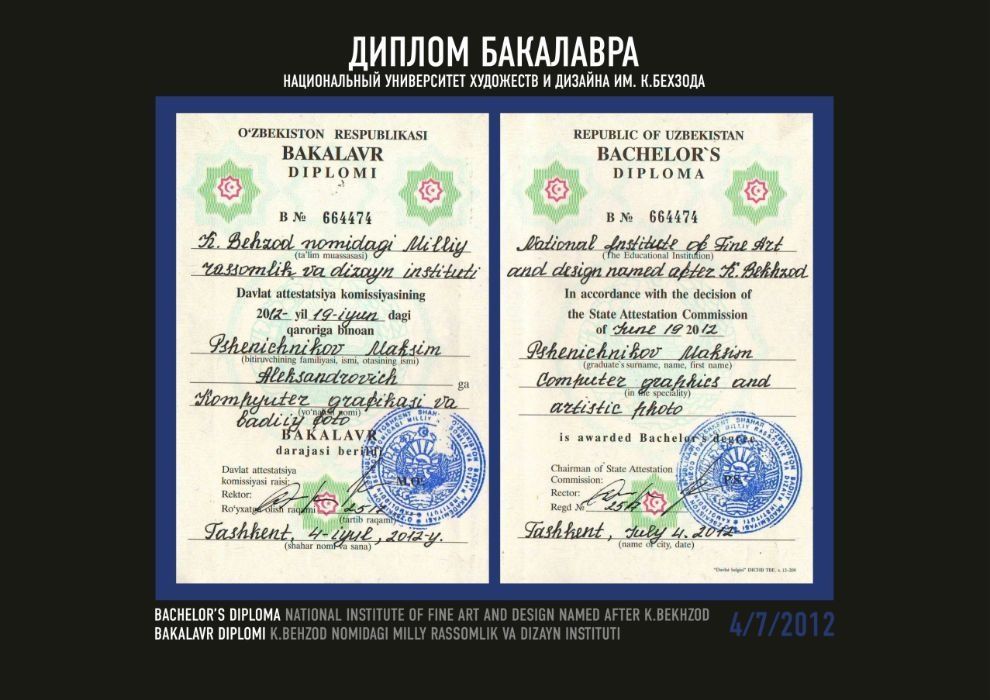 ДИПЛОМ БАКАЛАВРА
НАЦИОНАЛЬНЫЙ УНИВЕРСИТЕТ ХУДОЖЕСТВ И ДИЗАЙНА ИМ. К.БЕХЗОДА
O‘ZBEKISTON RESPUBLIKASI
BAKALAVR
DIPLOMI
B № 664474
K. Behzod nomidagi Milliy
(ta'lim muassasasi)
rassomlik va dizayn instituti
Davlat attestatsiya komissiyasining
2012- yil 19-iyun dagi
qaroriga binoan
Pshenichnikov Maksim
(bitiruvchining familiyasi, ismi, otasining ismi)
Aleksandrovich ga
Kompyuter grafikasi va
(yo'nalish nomi)
badiiy foto
BAKALAVR
darajasi berildi
Davlat attestatsiya
komissiyasi raisi:
M.O.
Rektor:
Ro'yxatga olish raqami 2517
(tartib raqami)
Tashkent, 4-iyul, 2012-y.
(shahar nomi va sana)
REPUBLIC OF UZBEKISTAN
BACHELOR`S
DIPLOMA
B № 664474
National Institute of Fine Art
(The Educational Institution)
and design named after K. Bekhzod
In accordance with the decision of
the State Attestation Commission
of June 19 2012
Pshenichnikov Maksim
(graduate's surname, name, first name)
Computer graphics and
(in the speciality)
artistic photo
is awarded Bachelor's degree
Chairman of State Attestation
Commission:
P.S.
Rector:
Regd № 2517
Tashkent, July 4. 2012
(name of city, date)
BACHELOR'S DIPLOMA NATIONAL INSTITUTE OF FINE ART AND DESIGN NAMED AFTER K.BEKHZOD
BAKALAVR DIPLOMI K.BEHZOD NOMIDAGI MILLY RASSOMLIK VA DIZAYN INSTITUTI
4/7/2012